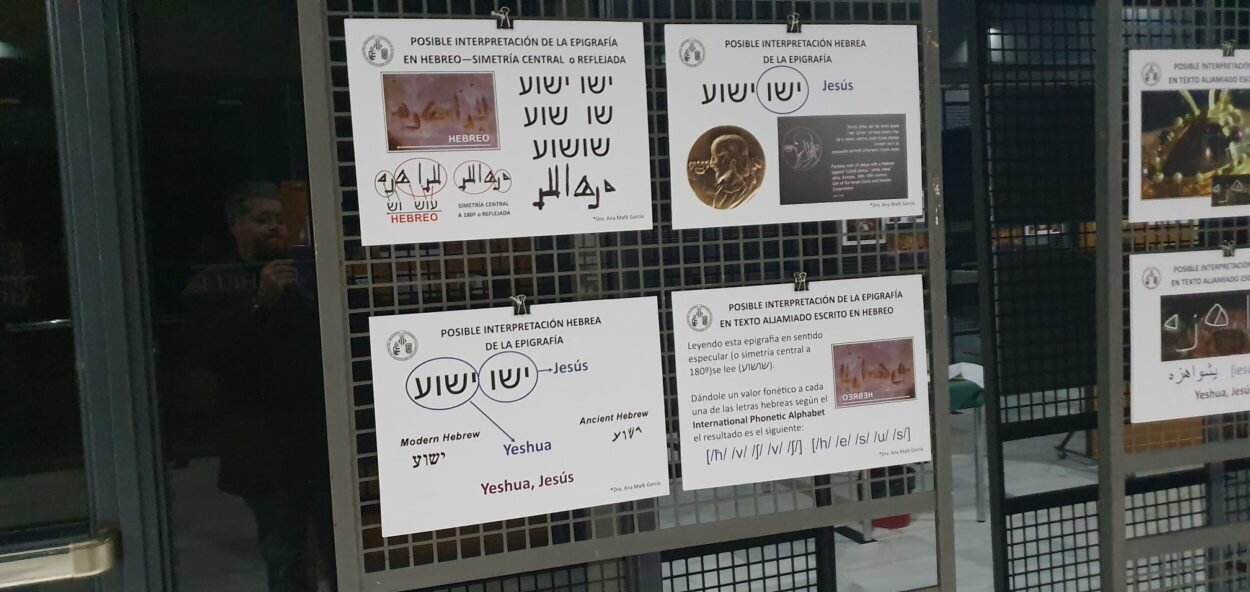 POSIBLE INTERPRETACIÓN DE LA EPIGRAFÍA
EN HEBREO—SIMETRÍA CENTRAL o REFLEJADA
ישו ישוע
שו שוע
שושוע
HEBREO
עוש וש
HEBREO
SIMETRÍA CENTRAL
A 180º o REFLEJADA
*Dra. Ana Mafé García
POSIBLE INTERPRETACIÓN HEBREA
DE LA EPIGRAFÍA
ישו ישוע
Jesús
*Dra. Ana Mafé García
POSIBLE INTERPRETACIÓN HEBREA
DE LA EPIGRAFÍA
ישו ישוע
Jesús
Modern Hebrew
ישוע
Yeshua
Ancient Hebrew
Yeshua, Jesús
*Dra. Ana Mafé García
POSIBLE INTERPRETACIÓN DE LA EPIGRAFÍA
EN TEXTO ALJAMIADO ESCRITO EN HEBREO
Leyendo esta epigrafía en sentido
especular (o simetría central a
180º)se lee (שושוע).
Dándole un valor fonético a cada
una de las letras hebreas según el
International Phonetic Alphabet
el resultado es el siguiente:
HEBREO
[/ħ/ /v/ /ʃ/ /v/ /ʃ/] [/h/ /e/ /s/ /u/ /s/]
*Dra. Ana Mafé García
POSIBLE INTERPRETACIÓN
EN TEXTO ALJAMIADO
POSIBLE INTERPRETACIÓN
EN TEXTO ALJAMIADO
يشواهزه
Yeshua,